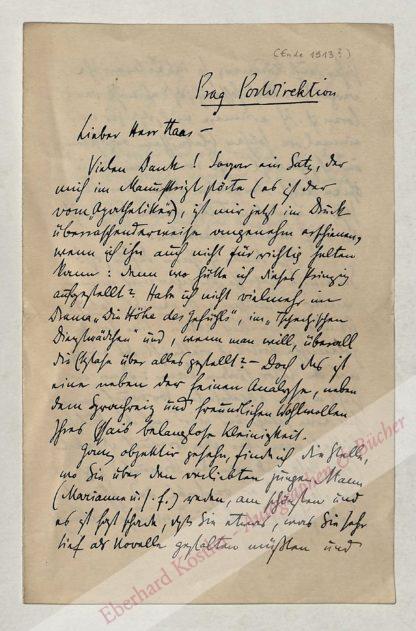 (Ende 1913?)
Prag Postdirektion
Lieber Herr Haas –
Vielen Dank! Sogar ein Satz, der
mich im Manuskript störte (es ist der
vom „Apathetiker“), ist mir jetzt im Druck
überraschenderweise angenehm erschienen,
wenn ich ihn auch nicht für richtig halten
kann: denn wo hätte ich dieses Prinzip
aufgestellt? Habe ich nicht vielmehr im
Drama „Die Höhe des Gefühls“, im „Tschechischen
Dienstmädchen“ und, wenn man will, überall
die Ekstase über alles gestellt? – Doch das ist
eine neben der feinen Analyse, neben
dem Sprachreiz und freundlichen Wohlwollen
Ihres Essais belanglose Kleinigkeit.
Ganz objektiv gesehn, finde ich die Stelle,
wo Sie über den verliebten jungen Mann
(Marianne u. s. f.) reden, am schönsten und
es ist fast schade, daß Sie etwas, was Sie sehr
tief als Novelle gestalten müßten und
Eberhard Köstler Autographen & Bücher